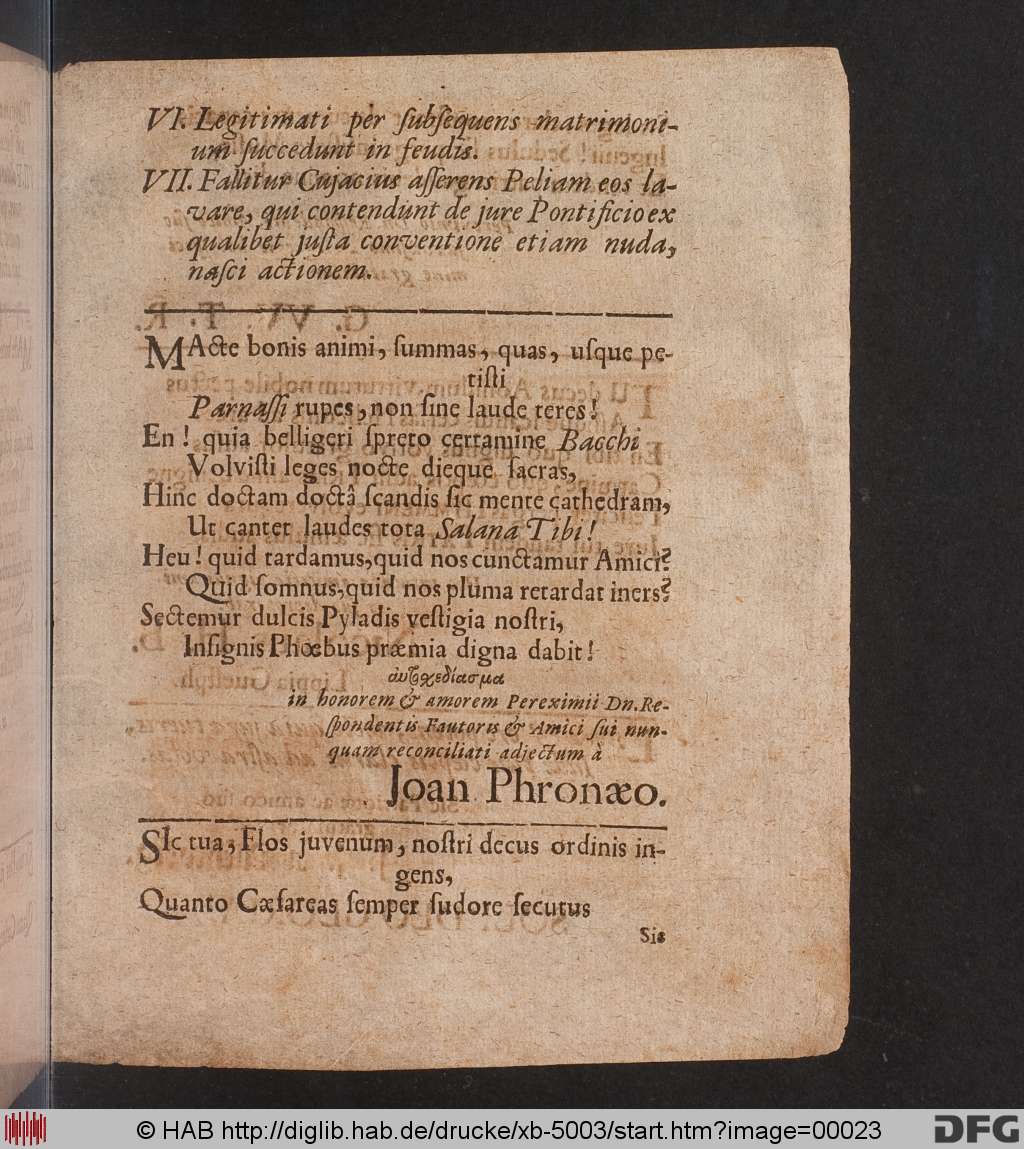 VI. Legitimati per ſubſequens matrimoni-
um ſuccedunt in feudis.
VII. Fallitur Cujacius aſſerens Peliam eos la-
vare, qui contendunt de jure Pontificio ex
qualibet juſta conventione etiam nuda,
naſci actionem.
MActe bonis animi, ſummas, quas, uſque pe-
tiſti
Parnaſſi rupes, non ſine laude teres!
En! quia belligeri ſpreto certamine Bacchi
Volviſti leges nocte dieque ſacras,
Hinc doctam doctâ ſcandis ſic mente cathedram,
Ut cantet laudes tota Salana Tibi!
Heu! quid tardamus, quid nos cunctamur Amici?
Quid ſomnus, quid nos pluma retardat iners?
Sectemur dulcis Pyladis veſtigia noſtri,
Inſignis Phœbus præmia digna dabit!
αυτοχεδίασμα
in honorem & amorem Pereximii Dn. Re-
ſpondentis Fautoris & Amici ſui nun-
quam reconciliati adjectum à
Joan Phronæo.
SIc tua, Flos juvenum, noſtri decus ordinis in-
gens,
Quanto Cæſareas ſemper ſudore ſecutus
Sis
© HAB http://diglib.hab.de/drucke/xb-5003/start.htm?image=00023
DFG